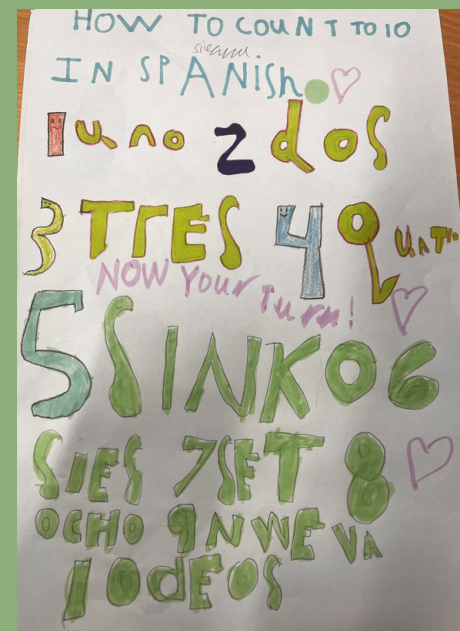 HOW TO COUNT TO 10
IN SPANISH
1 uno 2 dos
3 TrES 4 QUATro
NOW Your Turn!
5 SINKO 6
SIES 7 SET 8
OCHO 9 NWEVA
10 dEOS